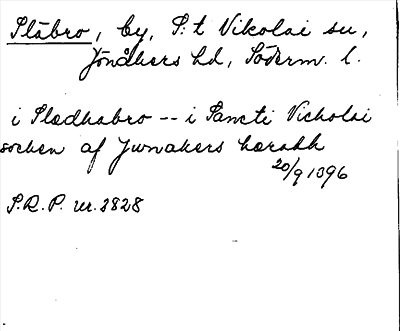 Släbro, by, S:t Nikolai sn,
Jönåkers hd, Söderm. l.
i Sledhabro -- i Sancti Nicholai
socken af Jwnakers häradh
20/9 1396
S.R.P. nr. 2828